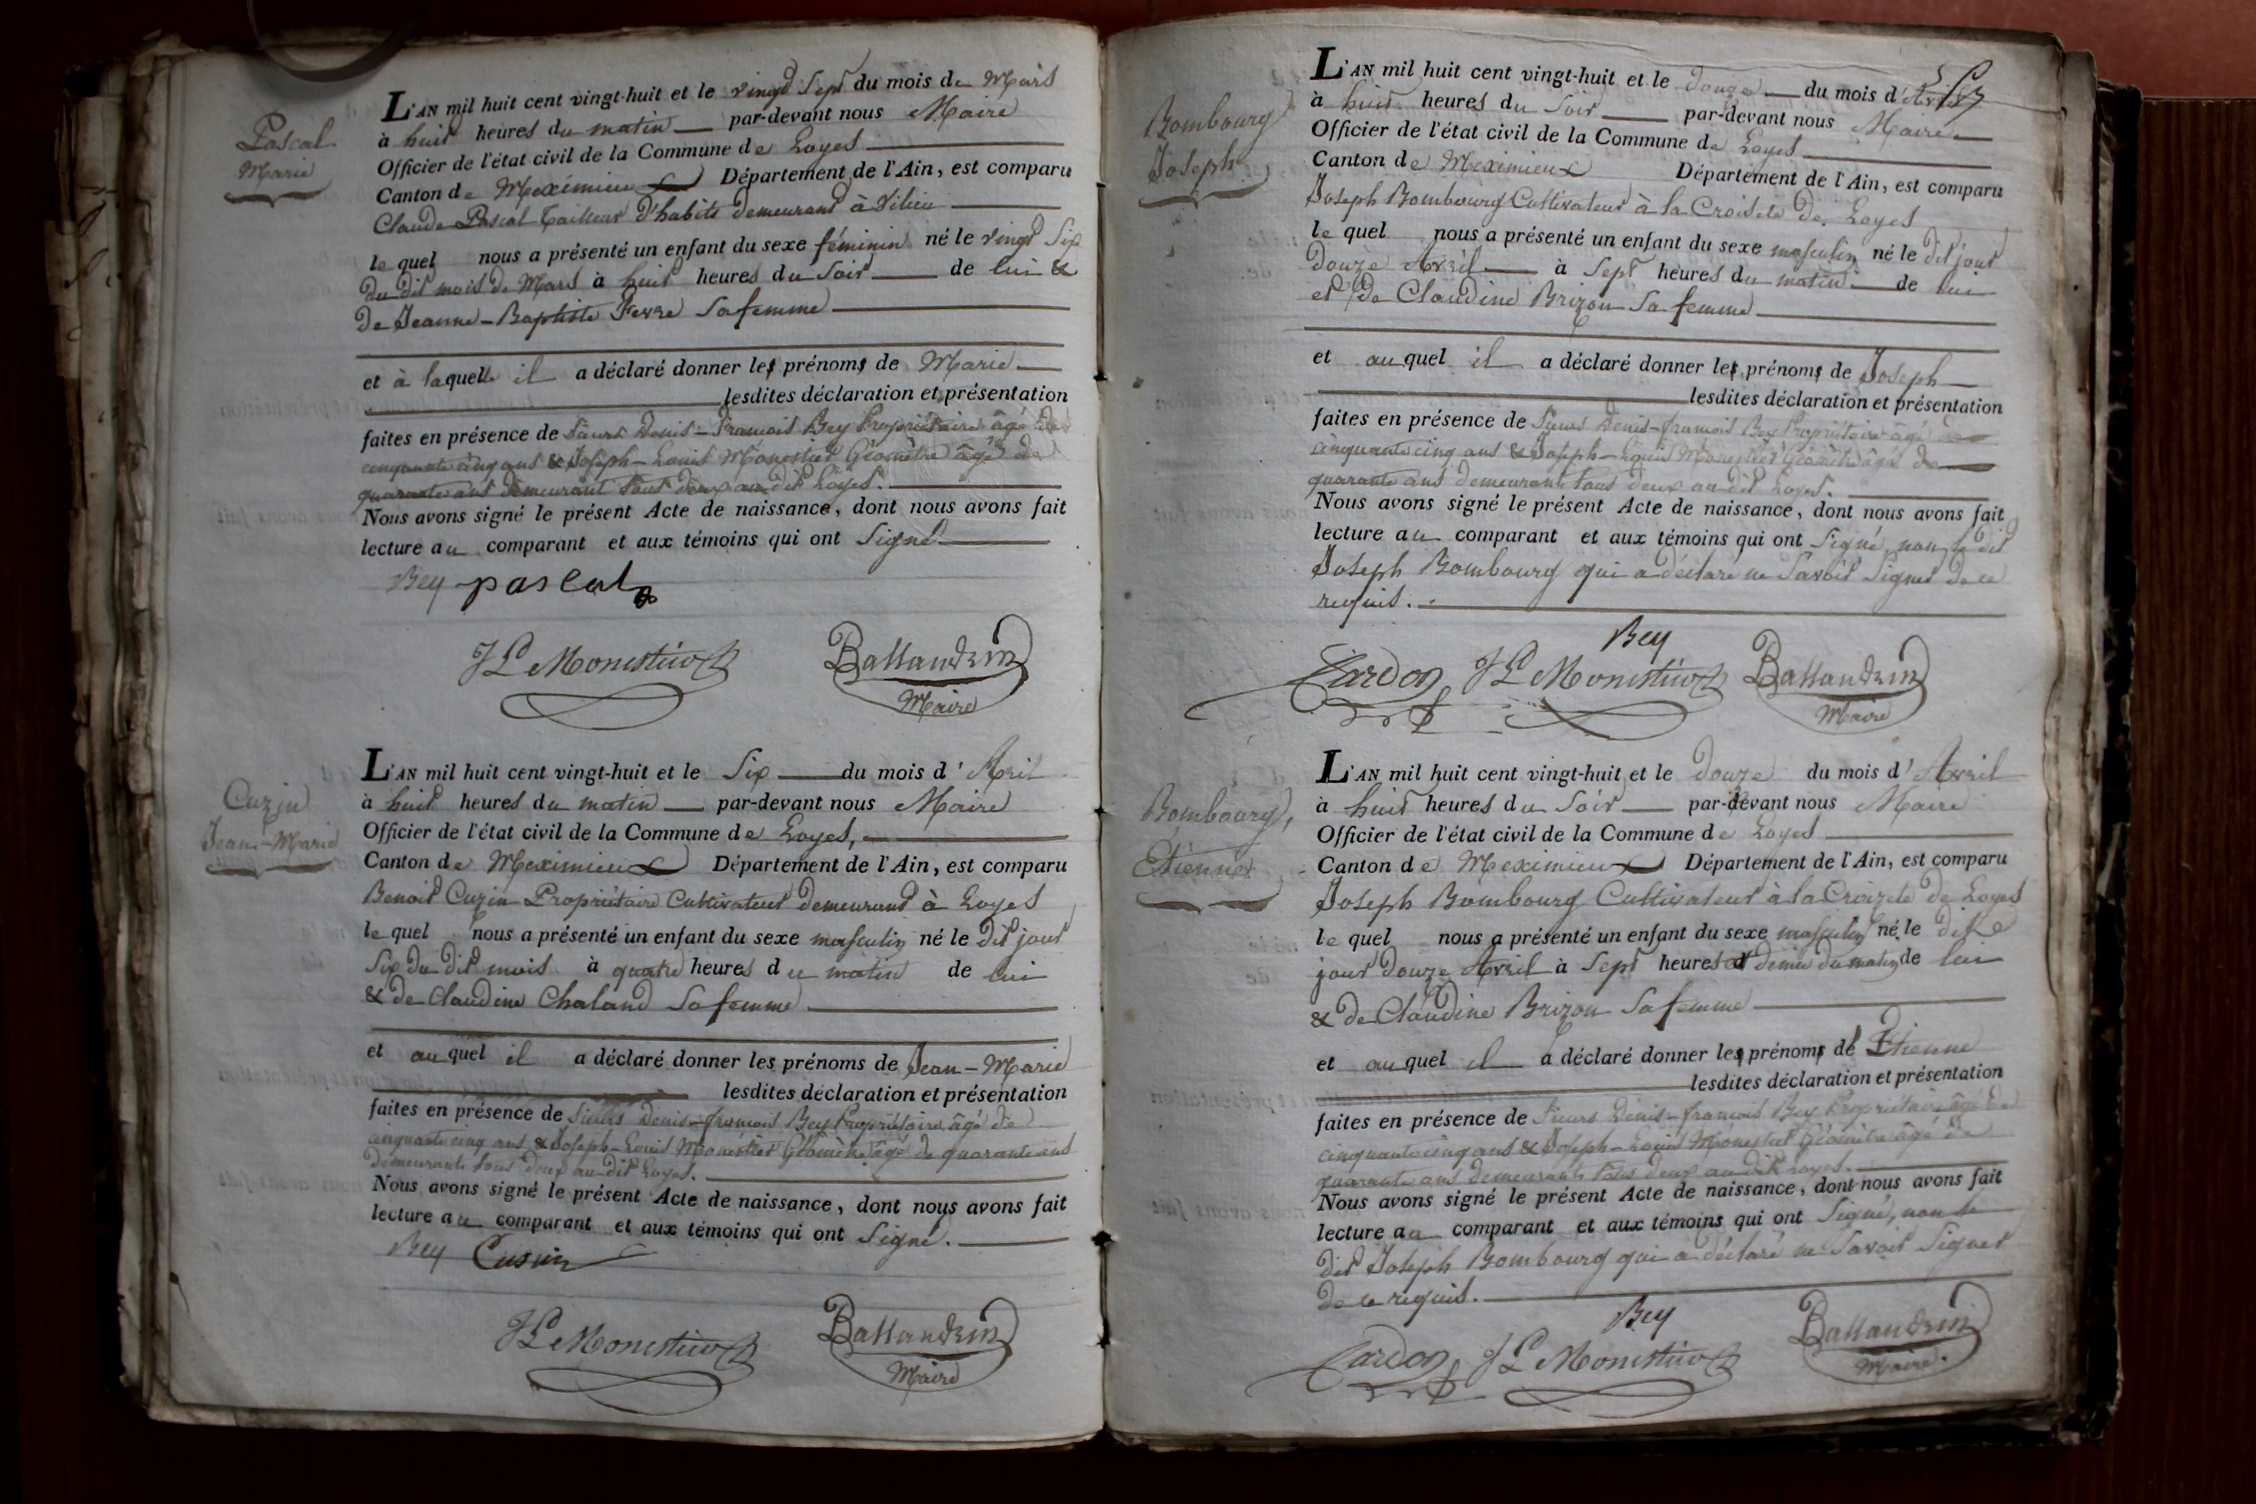 Pascal
Marie
L'AN mil huit cent vingt-huit et le vingt Sept du mois de Mars
à huit heures du matin par-devant nous Maire
Officier de l'état civil de la Commune de Loyes
Canton de Meximieux Département de l'Ain, est comparu
Claude Pascal Tailleur d'habits demeurant à Vilieu
le quel nous a présenté un enfant du sexe féminin né le vingt Six
du dit mois de Mars à huit heures du Soir de lui &
de Jeanne-Baptiste Fevre Sa femme
et à laquelle il a déclaré donner les prénoms de Marie
lesdites déclaration et présentation
faites en présence de Sieurs Denis-François Bey Propriétaire âgé de
cinquante cinq ans & Joseph-Louis Monestier Géomètre âgé de
quarante ans demeurant tous deux au dit Loyes.
Nous avons signé le présent Acte de naissance, dont nous avons fait
lecture au comparant et aux témoins qui ont Signé
Bey pascal
JL Monestier Ballandrin
Maire
Cuzin
Jean-Marie
L'AN mil huit cent vingt-huit et le Six du mois d' Avril
à huit heures du matin par-devant nous Maire
Officier de l'état civil de la Commune de Loyes,
Canton de Meximieux Département de l'Ain, est comparu
Benoit Cuzin Propriétaire Cultivateur demeurant à Loyes
le quel nous a présenté un enfant du sexe masculin né le dit jour
Six du dit mois à quatre heures du matin de lui
& de Claudine Chaland Sa femme
et au quel il a déclaré donner les prénoms de Jean-Marie
lesdites déclaration et présentation
faites en présence de Sieurs Denis-françois Bey Propriétaire âgé de
cinquante cinq ans & Joseph-Louis Monestier Géomètre âgé de quarante ans
demeurants tous deux au dit Loyes.
Nous avons signé le présent Acte de naissance, dont nous avons fait
lecture au comparant et aux témoins qui ont Signé.
Bey Cusin
JL Monestier Ballandrin
Maire
Bombourg
Joseph
L'AN mil huit cent vingt-huit et le douze du mois d'Avril
à huit heures du Soir par-devant nous Maire
Officier de l'état civil de la Commune de Loyes
Canton de Meximieux Département de l'Ain, est comparu
Joseph Bombourg Cultivateur à la Croisete de Loyes
le quel nous a présenté un enfant du sexe masculin né le dit jour
douze Avril à Sept heures du matin de lui
et de Claudine Brizon Sa femme
et au quel il a déclaré donner les prénoms de Joseph
lesdites déclaration et présentation
faites en présence de Sieurs Denis-françois Bey Propriétaire âgé de
cinquante cinq ans & Joseph-Louis Monestier Géomètre âgé de
quarante ans demeurants tous deux au dit Loyes.
Nous avons signé le présent Acte de naissance, dont nous avons fait
lecture au comparant et aux témoins qui ont Signé, non le dit
Joseph Bombourg qui a déclaré ne Savoir Signer de ce
requis.
Bey
Tardon JL Monestier Ballandrin
Maire
Bombourg,
Étienne
L'AN mil huit cent vingt-huit et le douze du mois d' Avril
à huit heures du Soir par-devant nous Maire
Officier de l'état civil de la Commune de Loyes
Canton de Meximieux Département de l'Ain, est comparu
Joseph Bombourg Cultivateur à la Croizete de Loyes
le quel nous a présenté un enfant du sexe masculin né le dit
jour douze Avril à Sept heures et demie du matin de lui
& de Claudine Brizon Sa femme
et au quel il a déclaré donner les prénoms de Etienne
lesdites déclaration et présentation
faites en présence de Sieurs Denis-françois Bey Propriétaire âgé de
cinquante cinq ans & Joseph-Louis Monestier Géomètre âgé de
quarante ans demeurants tous deux au dit Loyes.
Nous avons signé le présent Acte de naissance, dont nous avons fait
lecture au comparant et aux témoins qui ont Signé, non le
dit Joseph Bombourg qui a déclaré ne Savoir Signer
de ce requis.
Bey
Tardon JL Monestier Ballandrin
Maire.